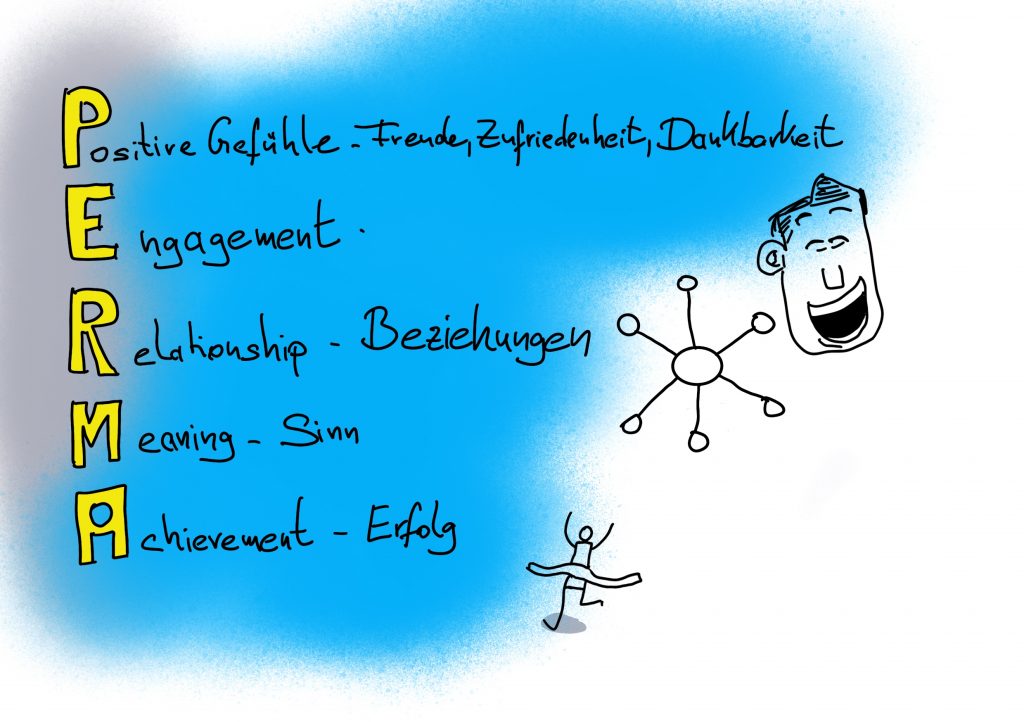 Positive Gefühle - Freude, Zufriedenheit, Dankbarkeit
Engagement.
Relationship - Beziehungen
Meaning - Sinn
Achievement - Erfolg